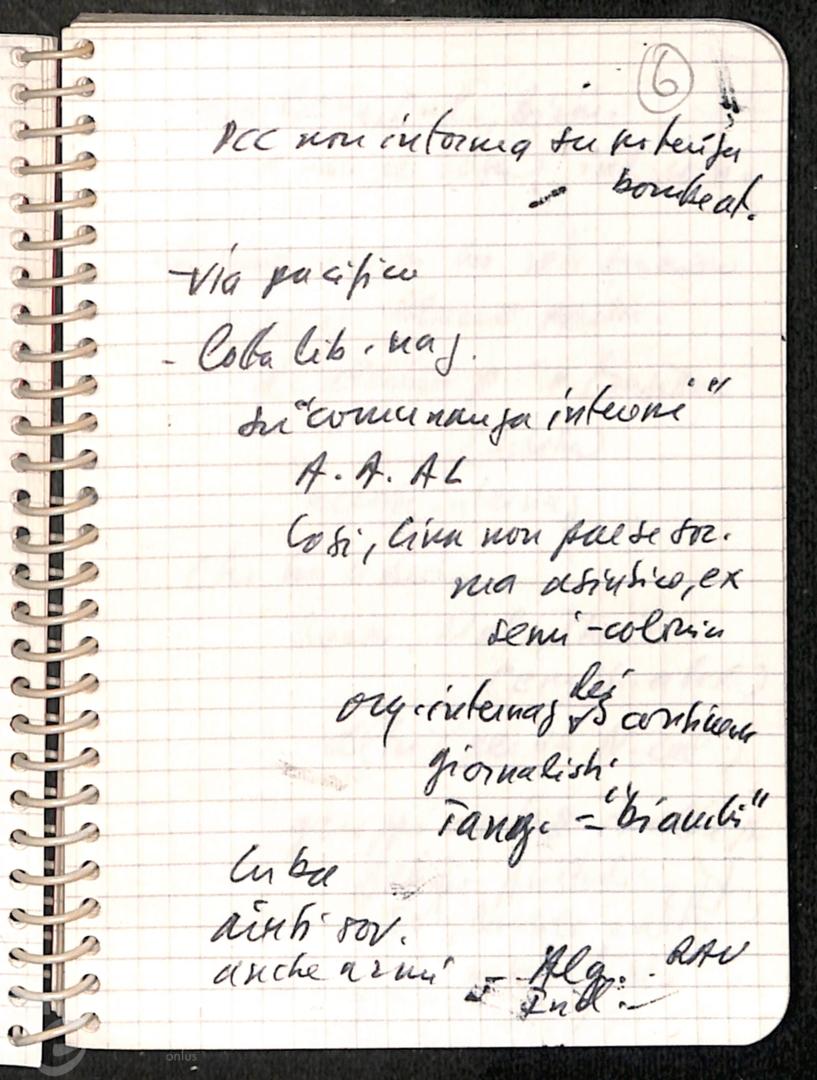 6
PCC non informa su potenza
bombe at.
- Via pacifica
- Lotta lib. naz.
su "comunanza interessi"
A. A. AL
Così, Cina non paese soc.
ma asiatico, ex
semi-colonia
org. internaz dei 3 continenti
giornalisti
Tang. = "bianchi"
Cuba
aiuti sov.
anche armi - Alg. . RAU
Ind. -
onlus